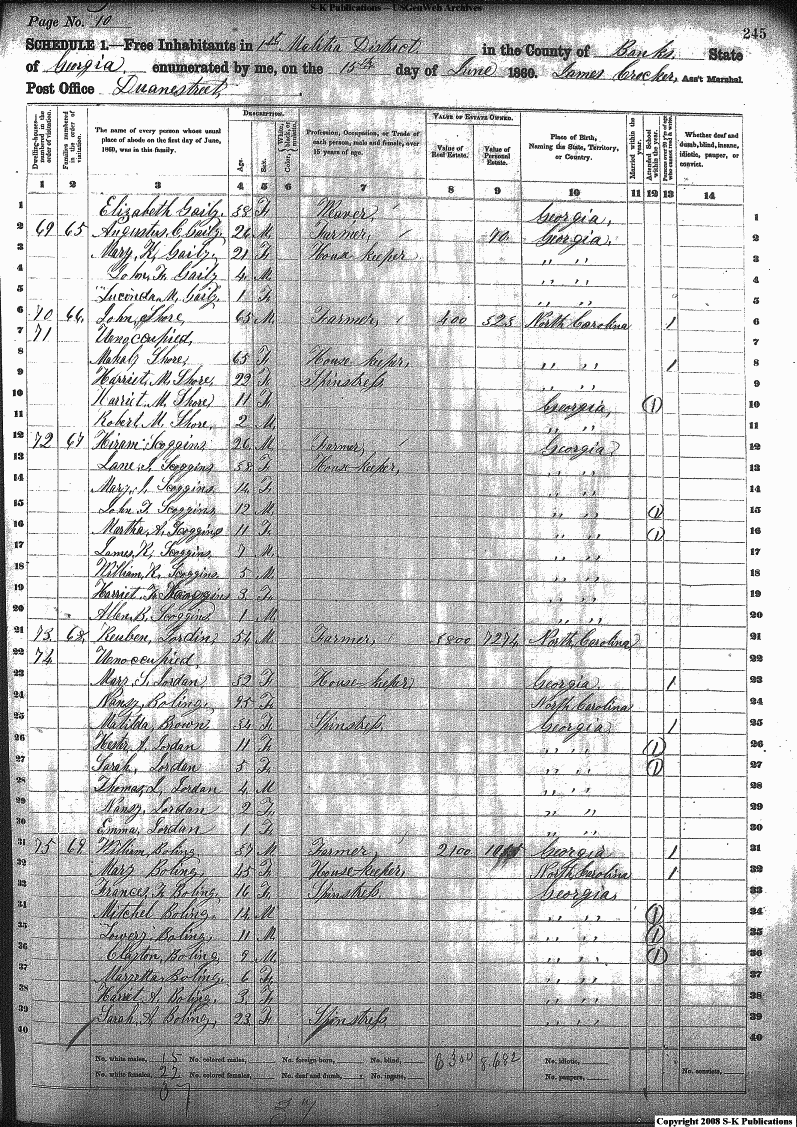 S-K Publications – USGenWeb Archives
Page No. 10
245
SCHEDULE 1.—Free Inhabitants in 1st Malitia District in the County of Banks State
of Georgia enumerated by me, on the 15th day of June 1860. James Crocker, Ass't Marshal
Post Office Duanestreet
Dwelling-houses numbered in the order of visitation.
Families numbered in the order of visitation.
The name of every person whose usual place of abode on the first day of June, 1860, was in this family.
DESCRIPTION.
Age.
Sex.
Color, White, black, or mulatto.
Profession, Occupation, or Trade of each person, male and female, over 15 years of age.
VALUE OF ESTATE OWNED.
Value of Real Estate.
Value of Personal Estate.
Place of Birth, Naming the State, Territory, or Country.
Married within the year.
Attended School within the year.
Persons over 20 y'rs of age who cannot read & write.
Whether deaf and dumb, blind, insane, idiotic, pauper, or convict.
1 2 3 4 5 6 7 8 9 10 11 12 13 14
1 Elizabeth Gaily F. Weaver Georgia, 1
2 69 65 Augusters C. Gaily 26 M. Farmer, 90 Georgia, 2
3 Mary, K, Gaily 21 F. House keeper ,, ,, 3
4 John, F. Gaily 4 M. ,, ,, 4
5 Lucinda, M, Gaily 1 F. ,, ,, 5
6 70 66 John, Shore, 65 M. Farmer, 400 525 North Carolina 1 6
7 71 Unoccupied, 7
8 Mahaly Shore, 65 F. House keeper, ,, ,, 1 8
9 Harriet, M, Shore, 22 F. Spinstress ,, ,, 9
10 Harriet M. Shore 11 F. Georgia, 1 10
11 Robert, M, Shore, 2 M. ,, ,, 11
12 72 67 Hiram Scoggins 26 M. Farmer, Georgia 12
13 Lane, J, Scoggins F. House keeper, ,, ,, 13
14 Mary, J, Scoggins 14 F. ,, ,, 14
15 John F. Scoggins 12 M. ,, ,, 1 15
16 Martha, A, Scoggins 11 F. ,, ,, 1 16
17 James, R, Scoggins 7 M. ,, ,, 17
18 William, R, Scoggins 5 M. ,, ,, 18
19 Harriet F. Scoggins 3 F. ,, ,, 19
20 Allen, B, Scoggins 1 M. ,, ,, 20
21 73 68 Reuben, Jordin, 54 M. Farmer, 3800 7274 North, Carolina 21
22 74 Unoccupied, 22
23 Mary, S, Jordan 52 F. House keeper, Georgia 1 23
24 Nansy, Boling, 95 F. North Carolina 24
25 Matilda, Brown 34 F. Spinstress, Georgia 1 25
26 Hestr, A, Jordan 11 F. ,, ,, 1 26
27 Sarah, Jordan 5 F. ,, ,, 1 27
28 Thomas, L, Jordan 4 M ,, ,, 28
29 Nansy, Jordan 2 F. ,, ,, 29
30 Emma, Jordan 1 F. ,, ,, 30
31 75 69 William, Boling 57 M Farmer 2100 Georgia 1 31
32 Mary Boling, 45 F. House-keeper, North Carolina 1 32
33 Frances, F. Boling, 16 F. Spinstress. Georgia, 33
34 Mitchel Boling, 14 M ,, ,, 1 34
35 Lowery Boling, 11 M. ,, ,, 1 35
36 Clayton, Boling, 9 M. ,, ,, 1 36
37 Marretta, Boling, 6 F. ,, ,, 37
38 Harriet, A, Boling, 3 F. ,, ,, 38
39 Sarah, A, Boling, 23 F. Spinstress ,, ,, 39
40 40
No. white males, 15 No. colored males, No. foreign born, No. blind, 6300 8.682 No. idiotic,
No. white females, 22 No. colored females, No. deaf and dumb, No. insane, No. paupers, No. convicts,
37
Copyright 2008 S-K Publications